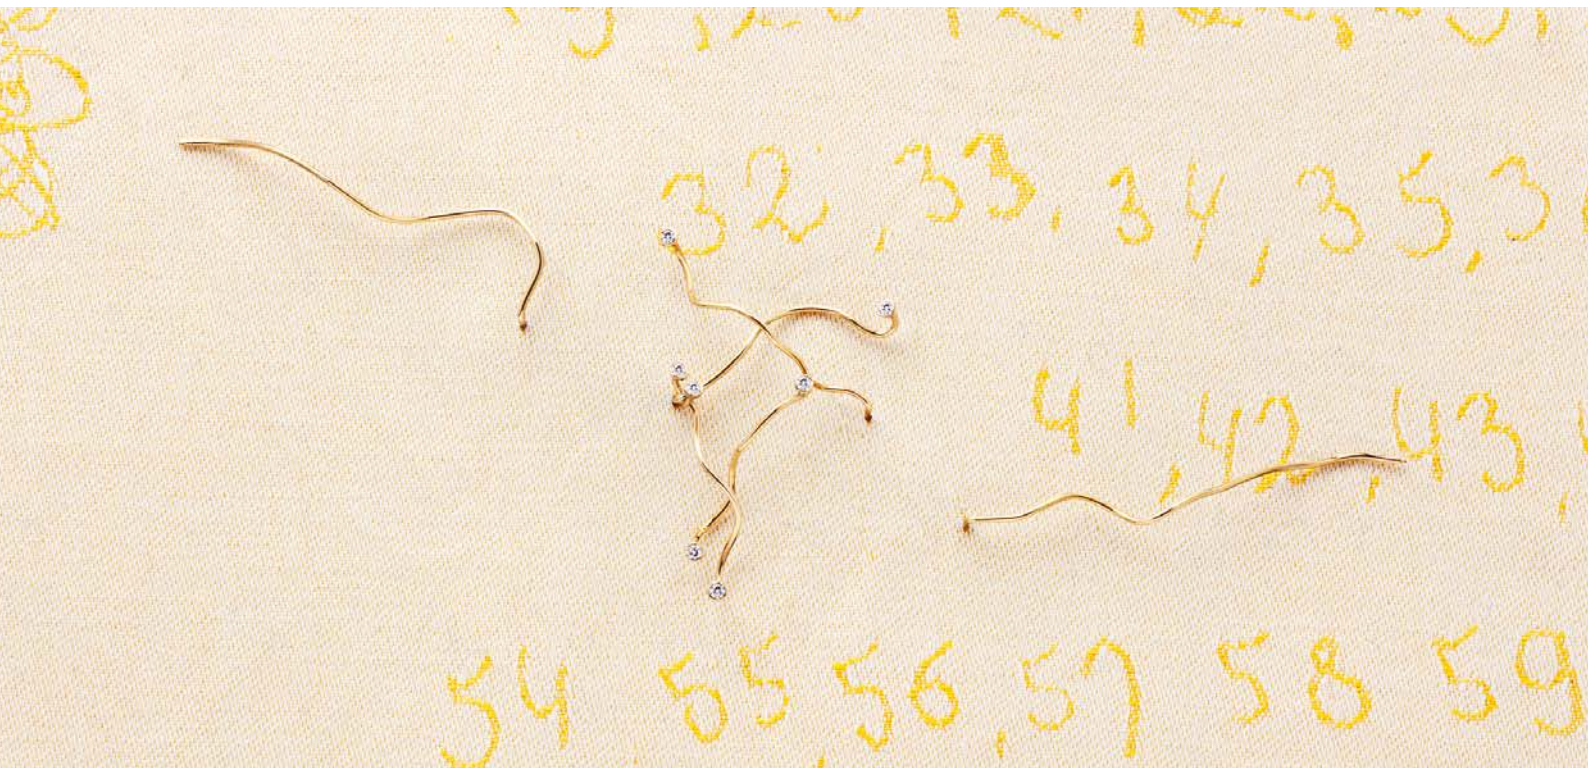 32, 33, 34, 35, 3
41, 42, 43,
54 55, 56, 57 58 59